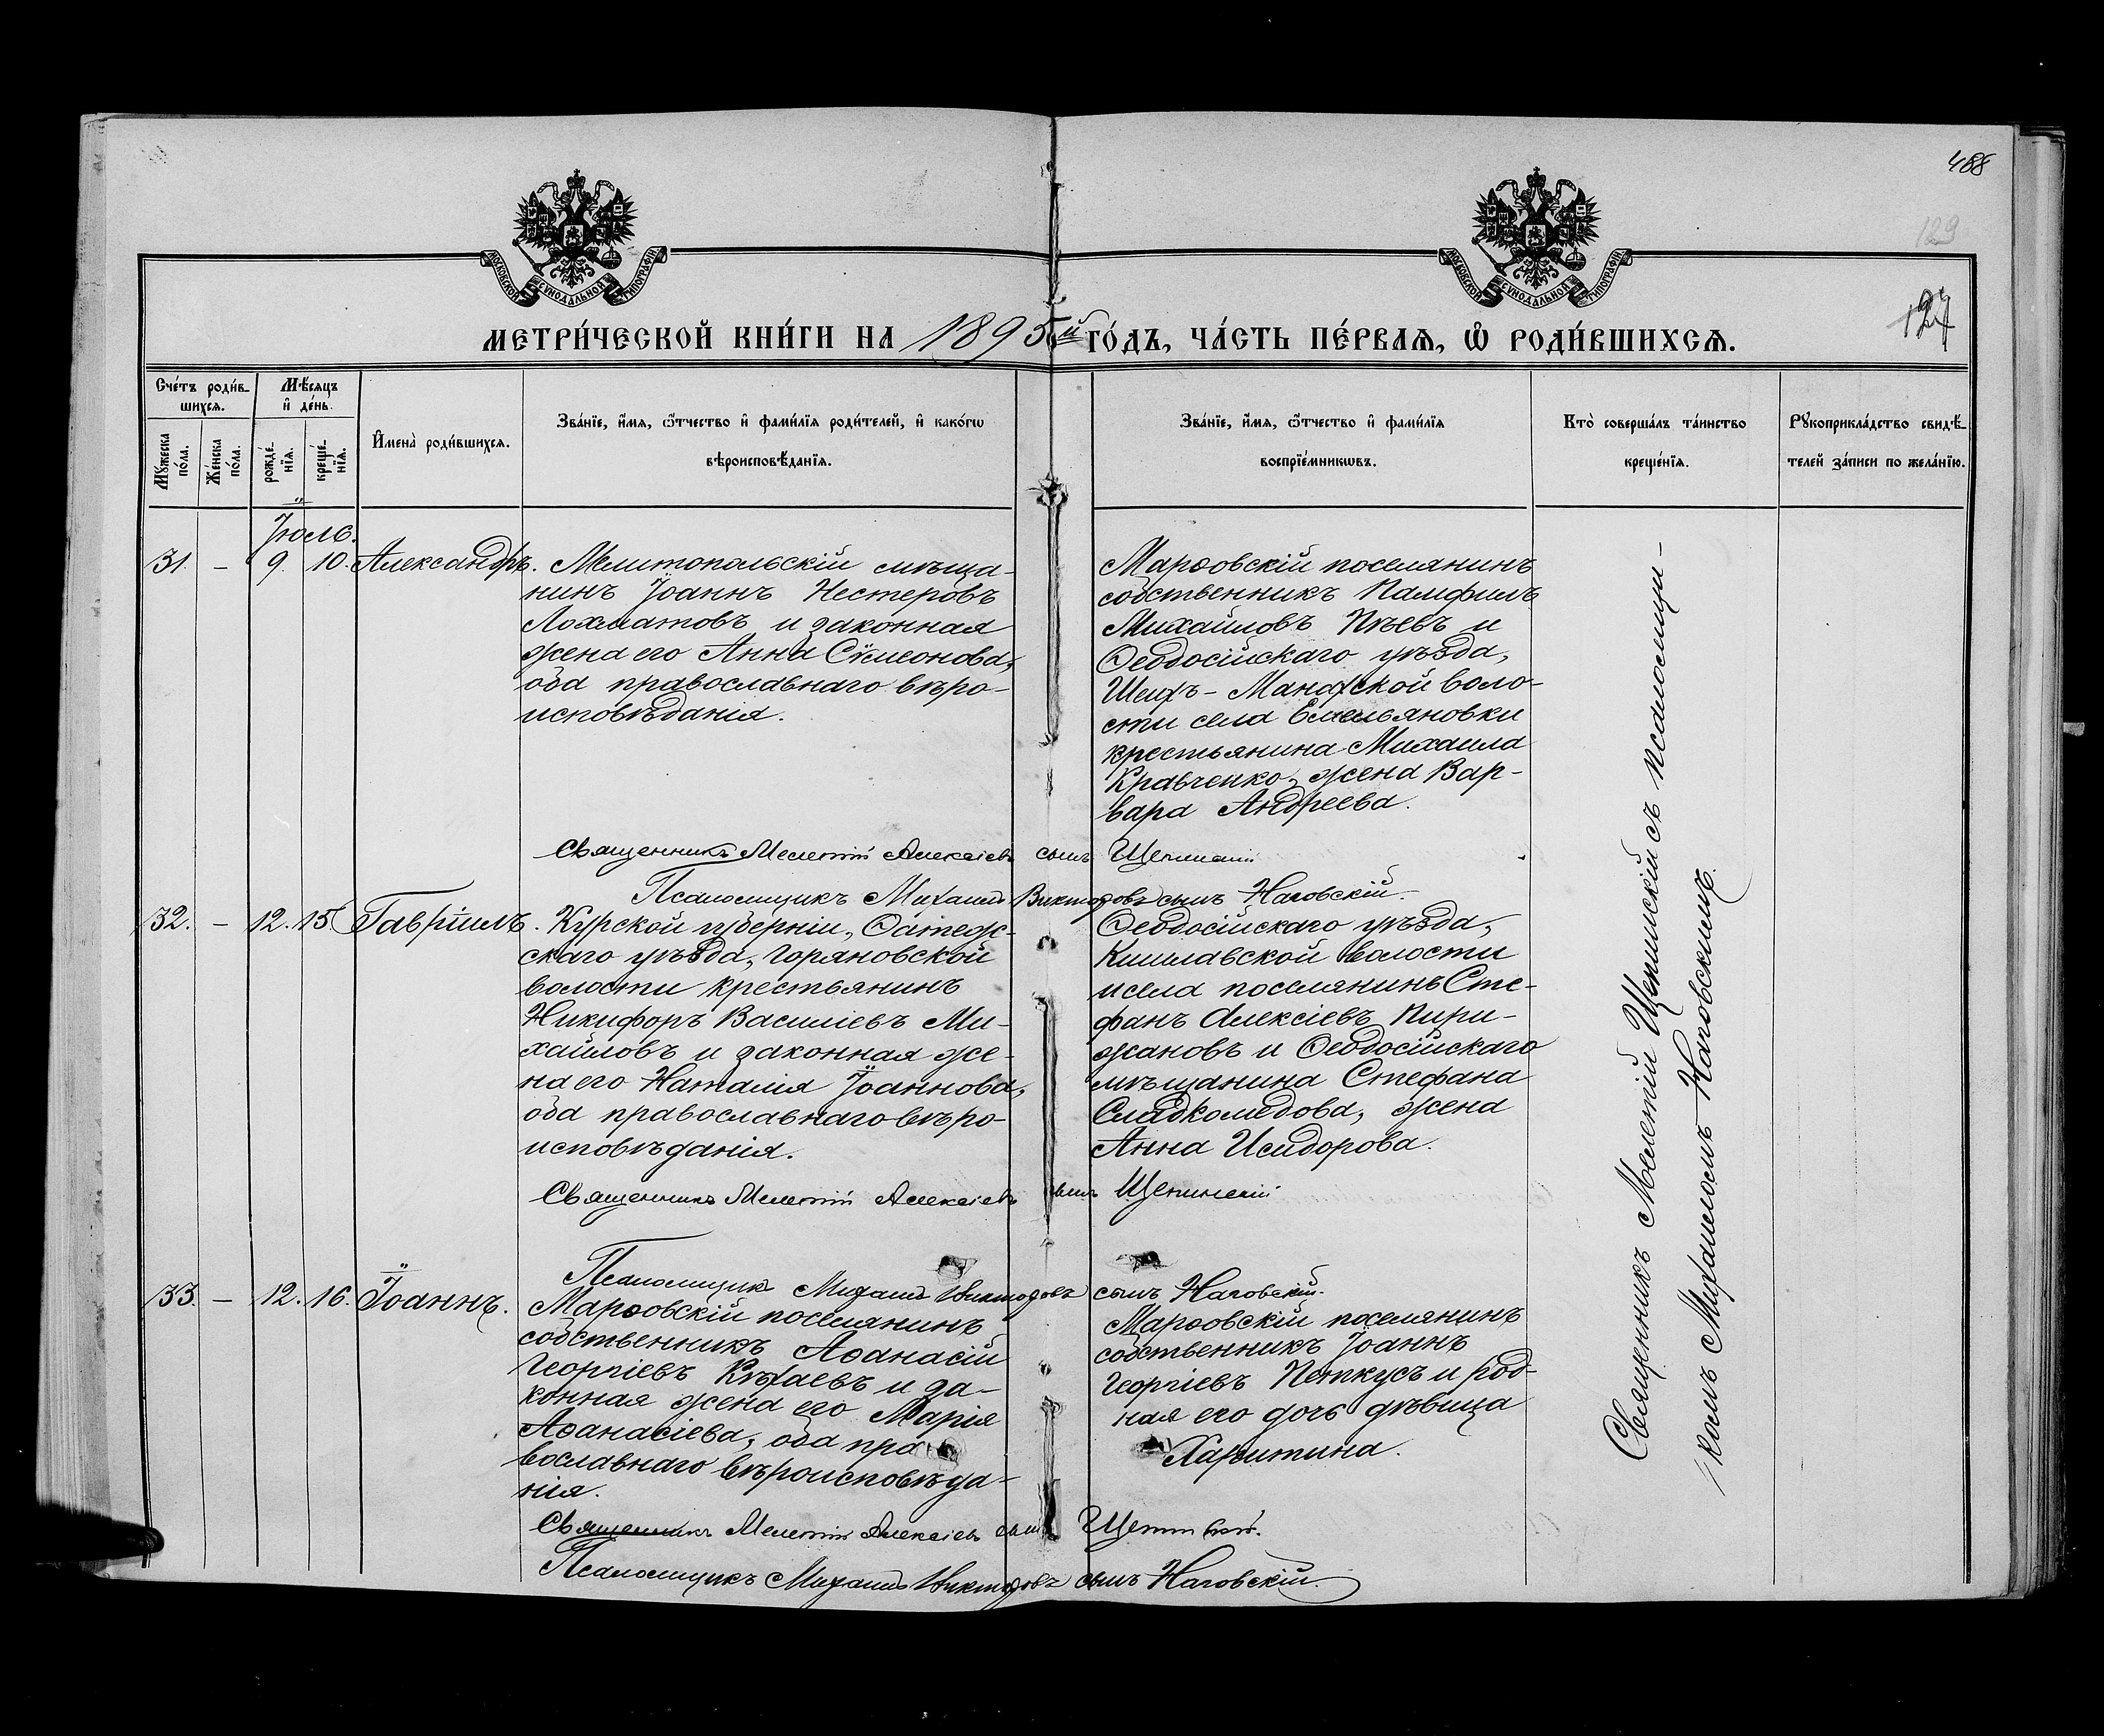 488
129
127
МОСКОВСКОЙ СѴНОДАЛЬНОЙ ТИПОГРАФІИ
МОСКОВСКОЙ СѴНОДАЛЬНОЙ ТИПОГРАФІИ
МЕТРИ́ЧЕСКОЙ КНИ́ГИ НА 1895й ГО́ДЪ, ЧА́СТЬ ПЕ́РВАѦ, Ѽ РОДИ́ВШИХСѦ.
Сче́тъ роди́в-
шихсѧ.
Мѣ́сѧцъ
и҆ де́нь.
Мꙋ́жеска
по́ла.
Же́нска
по́ла.
рожде́-
нїѧ.
креще́-
нїѧ.
И҆мена̀ роди́вшихсѧ.
Зва́нїе, и҆́мѧ, ѻ҆́тчество и҆ фами́лїѧ роди́телей, и҆ како́гѡ
вѣроисповѣ́данїѧ.
Зва́нїе, и҆́мѧ, ѻ҆́тчество и҆ фами́лїѧ
воспрїе́мникѡвъ.
Кто̀ соверша́лъ та́инство
креще́нїѧ.
Рꙋкоприкла́дство свидѣ́-
телей за́писи по жела́нїю.
Іюль.
31. – 9. 10. Александръ.
Мелитопольскій мѣща-
нинъ Іоаннъ Нестеровъ
Лохматовъ и законная
жена его Анна Сѵмеонова,
оба православнаго вѣро-
исповѣданія.
Марѳовскій поселянинъ
собственникъ Памфилъ
Михайловъ Пѣевъ и
Ѳеодосійскаго уѣзда,
Шейхъ-Манахской воло-
сти села Емельяновки
крестьянина Михаила
Кравченко, жена Вар-
вара Андреева.
Священникъ Мелетій Алексіевъ сынъ Щепинскій
Псаломщикъ Михаилъ Викторовъ сынъ Наговскій.
32. – 12. 15 Гавріилъ.
Курской губерніи, Фатеж-
скаго уѣзда, Горяновской
волости крестьянинъ
Никифоръ Василіевъ Ми-
хайловъ и законная же-
на его Наталія Іоаннова,
оба православнаго вѣро-
исповѣданія.
Ѳеодосійскаго уѣзда,
Кишлавской волости
и села поселянинъ Сте-
фанъ Алексіевъ Пири-
жановъ и Ѳеодосійскаго
мѣщанина Стефана
Сладкомедова, жена
Анна Исидорова.
Священникъ Мелетій Алексіевъ сынъ Щепинскій
Псаломщикъ Михаилъ Викторовъ сынъ Наговскій.
33. – 12. 16. Іоаннъ.
Марѳовскій поселянинъ
собственникъ Аѳанасій
Георгіевъ Кѣхаевъ и за-
конная жена его Марія
Аѳанасіева, оба пра
вославнаго вѣроисповѣда-
нія.
Марѳовскій поселянинъ
собственникъ Іоаннъ
Георгіевъ Петкусъ и род-
ная его дочь дѣвица
Харитина.
Священникъ Мелетій Алексіевъ сынъ Щепинскій.
Псаломщикъ Михаилъ Викторовъ сынъ Наговскій.
Священникъ Мелетій Щепинскій съ псаломщи-
комъ Михаиломъ Наговскимъ.